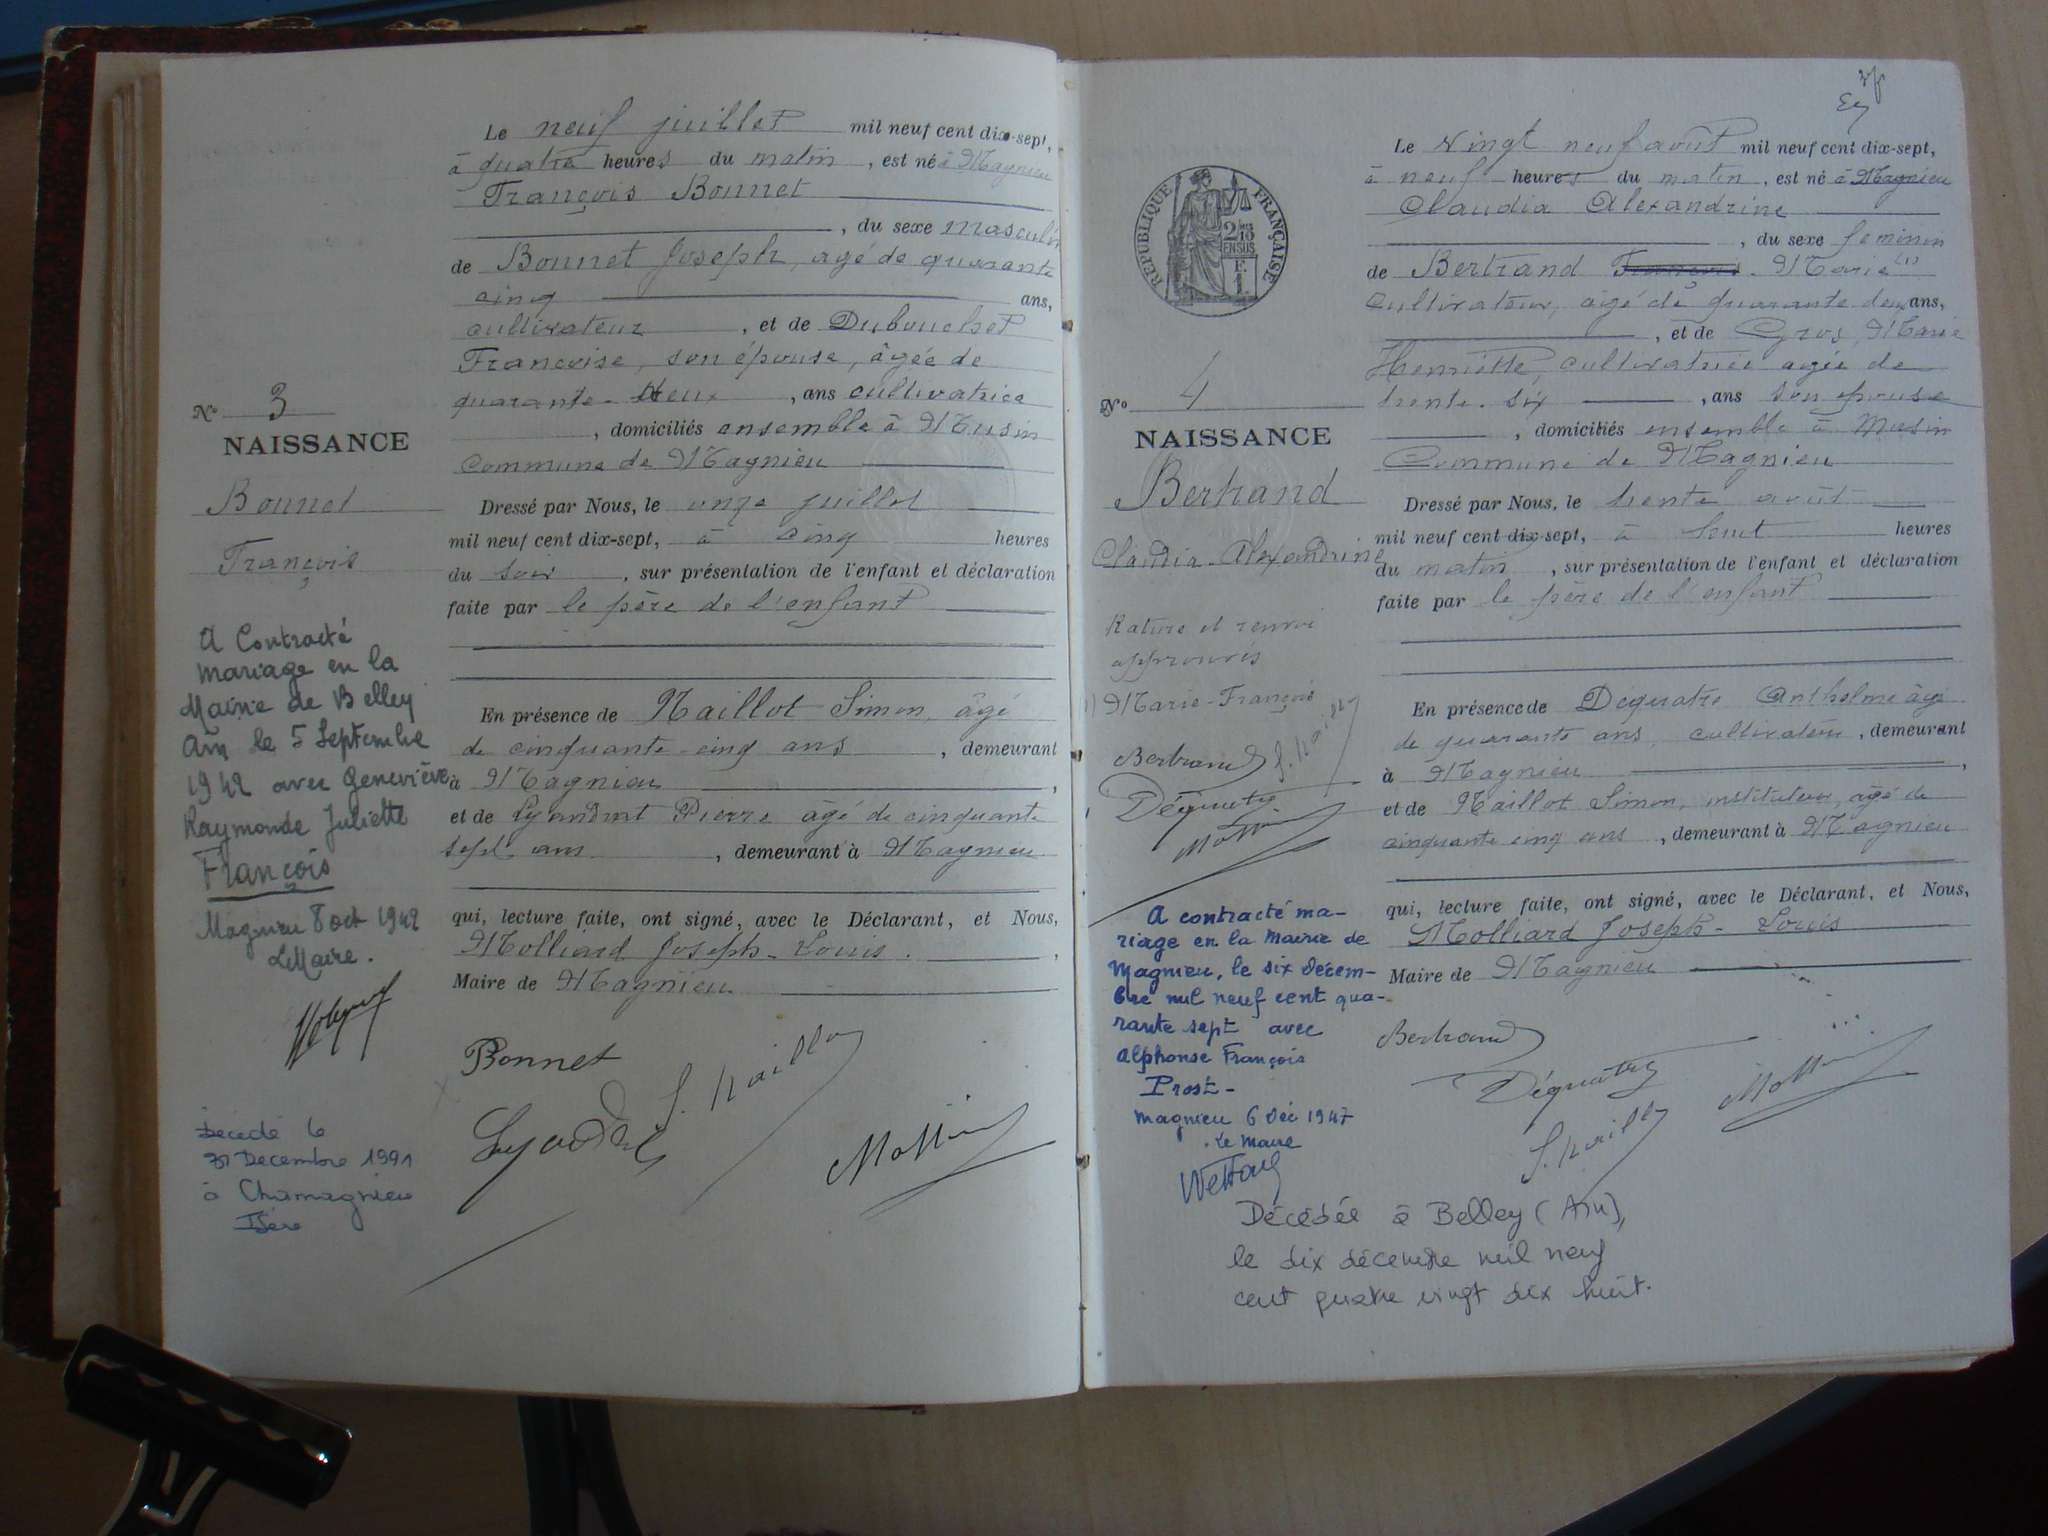 Le neuf juillet mil neuf cent dix-sept,
à quatre heures du matin, est né à Magnieu
François Bonnet
, du sexe masculin
de Bonnet Joseph, agé de quarante
cinq ans,
cultivateur, et de Dubouchet
Françoise, son épouse, âgée de
quarante-deux, ans cultivatrice
, domiciliés ensemble à Musin
Commune de Magnieu
Dressé par Nous, le onze juillet
mil neuf cent dix-sept, à cinq heures
du soir, sur présentation de l'enfant et déclaration
faite par le père de l'enfant
En présence de Naillot Simon, âgé
de cinquante-cinq ans, demeurant
à Magnieu,
et de Lyaudet Pierre âgé de cinquante
sept ans, demeurant à Magnieu
qui, lecture faite, ont signé, avec le Déclarant, et Nous,
Molliard Joseph-Louis.,
Maire de Magnieu
Bonnet
Lyaudet
Nº 3
NAISSANCE
Bonnet
François
A Contracté
mariage en la
Mairie de Belley
Ain le 5 Septembre
1942 avec Geneviève
Raymonde Juliette
François
Magnieu 8 oct 1942
Le Maire.
Décédé le
31 Decembre 1991
à Chamagnieu
Isère
Le Vingt neuf août mil neuf cent dix-sept,
à neuf heures du matin, est né à Magnieu
Claudia Alexandrine
, du sexe feminin
de Bertrand François Marie (1)
Cultivateur, âgé de quarante deux ans,
, et de Gros, Marie
Henriette, cultivatrice agée de
trente-six, ans son épouse
, domiciliés ensemble à Musin
Commune de Magnieu
Dressé par Nous, le trente août
mil neuf cent dix-sept, à heures
du matin, sur présentation de l'enfant et déclaration
faite par le père de l'enfant
En présence de Déquatre Anthelme âgé
de quarante ans, cultivateur, demeurant
à Magnieu,
et de Naillot Simon, instituteur, agé de
cinquante cinq ans, demeurant à Magnieu
qui, lecture faite, ont signé, avec le Déclarant, et Nous,
Molliard Joseph-Louis
Maire de Magnieu
Bertrand
Déquatre
REPUBLIQUE FRANÇAISE
Nº 4
NAISSANCE
Bertrand
Claudia-Alexandrine
Rature et renvoi
approuvés
1) Marie-François
Bertrand
Déquatre
A contracté ma-
riage en la Mairie de
Magnieu, le six décem-
bre mil neuf cent qua-
rante sept avec
Alphonse François
Prost-
Magnieu 6 Déc 1947
Le Maire
Décédée à Belley (Ain),
le dix décembre mil neuf
cent quatre vingt dix huit.